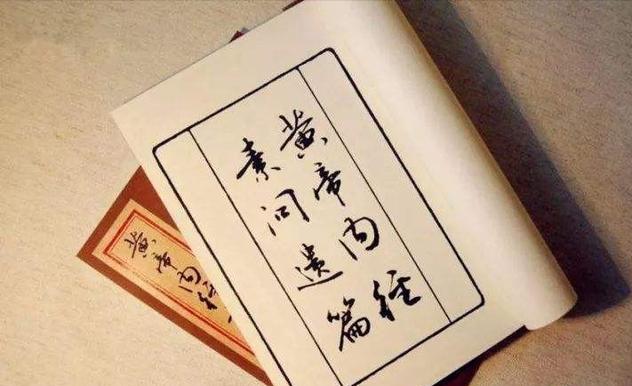 黄帝内经
素问遗篇
黄帝内经